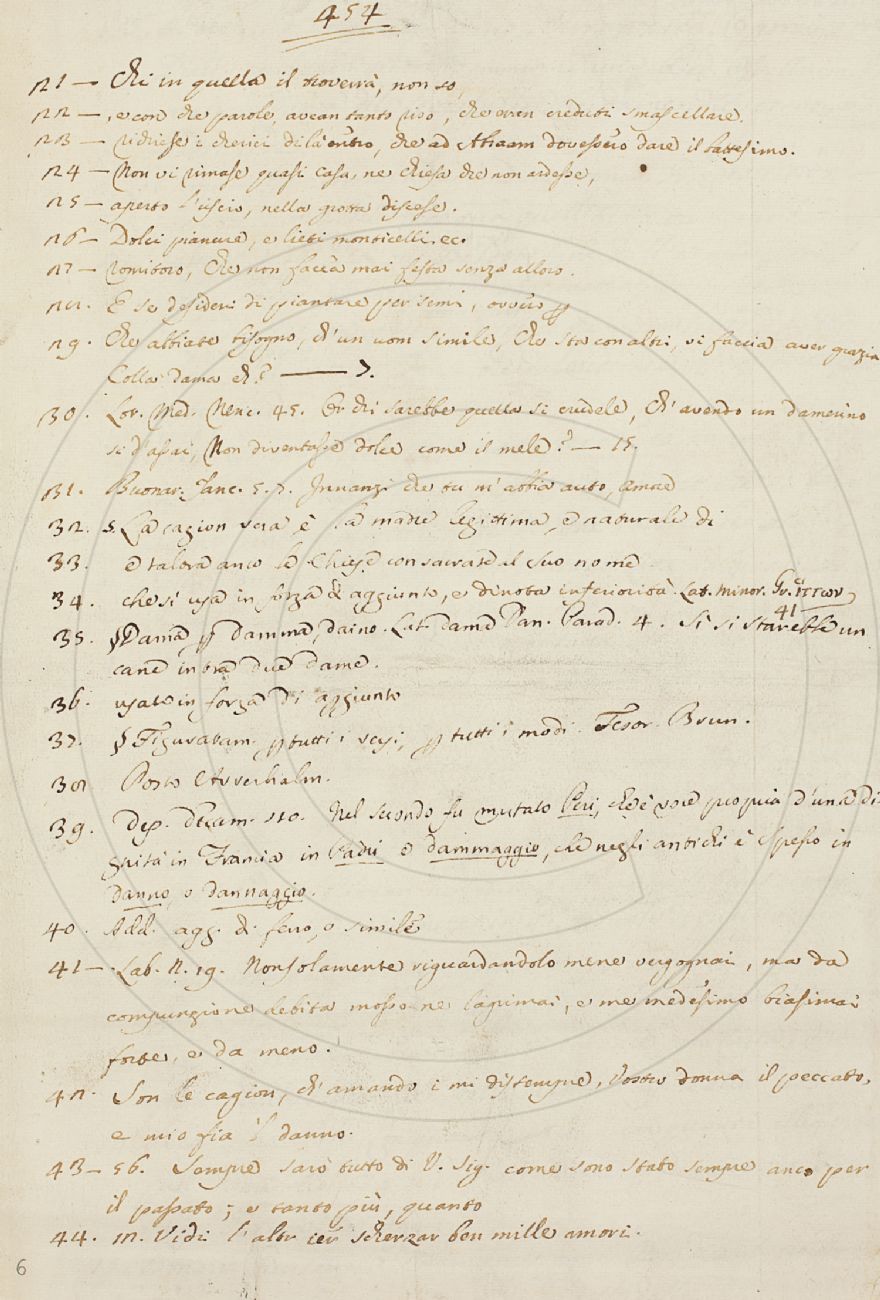 454
21 — Chi in quella il troverrà, non so,
22 — , e con che parole, avean tanto riso, che eran creduti smascellare.
23 — ridiesse i cherici di là entro, che ad Abraam dovessero dare il battesimo.
24 — Non vi rimase quasi casa, ne chiesa che non ardesse,
25 — aperto l'uscio, nella grotta discese.
26 — Dolci pianure, e lieti monticelli. ec.
27 — romitoro, che non faccia mai festa senza alloro.
28. E se desideri di piantare per semi, ovvero
29. Che abbiate bisogno, ch'un uom simile, che sta con altri, vi faccia aver grazia
Colla dama eh? ——— 7.
30. Lor. Med. Nenc. 45. Or chi sarebbe quella sì crudele, Ch'avendo un damerino
sì d'assai, Non diventasse dolce come il mele? — 15.
31. Buonar. Tanc. 5. 7. Innanzi che tu m'abbia auto, Amae
32. §. La cagion vera è la madre legittima, e naturale di
33. e talora anco le Chiese consacrate al suo nome
34. che si usa in forza di aggiunto, e dinota inferiorità. Lat. minor. Gr. ἥττων
35. § Dama damma, daino. Lat. dama Dan. Parad. 4. Sì si starebbe un
41
cane intra due dame.
36. usate in forza di aggiunto
37. § Figuratam. tutti i versi, tutti i modi. Tesor. Brun.
38 Posto Avverbialm.
39. Dep. Decam. 110. Nel secondo fu mutato Peri, che è voce propria d'una di-
gnità in Francia in Padri e dammaggio, che negli antichi è spesso in
danno, o dannaggio.
40. Add. agg. di ferro, o simile
41 — Lab. N. 19. Non solamente riguardandolo mene vergognai, ma da
compunzione debita mosso ne lagrimai, e me medesimo biasimai
forte, e da meno.
42. Son le cagion, ch'amando i mi distempre, Vostro donna il peccato,
e mio fia 'l danno.
43 — 56. Sempre sarò tutto di V. Sig. come sono stato sempre anco per
il passato; e tanto più, quanto
44. Vidi l'altr ier scherzar ben mille amori.
6